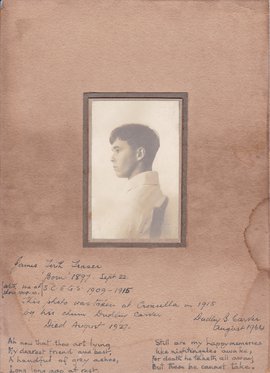 James Firth Fraser
Born 1897. Sept 22
with me at S.C.E.G.S. 1909-1915
This photo was taken at Cronulla in 1915
by his chum Dudley Carver
Died August 1927.
Dudley S. Carver
August 1964
Ah now that thou art lying
My dearest friend and best,
A handful of grey ashes,
Long long ago at rest
Still are my happy memories
like nightingales awake;
For death he taketh all away
But them he cannot take.